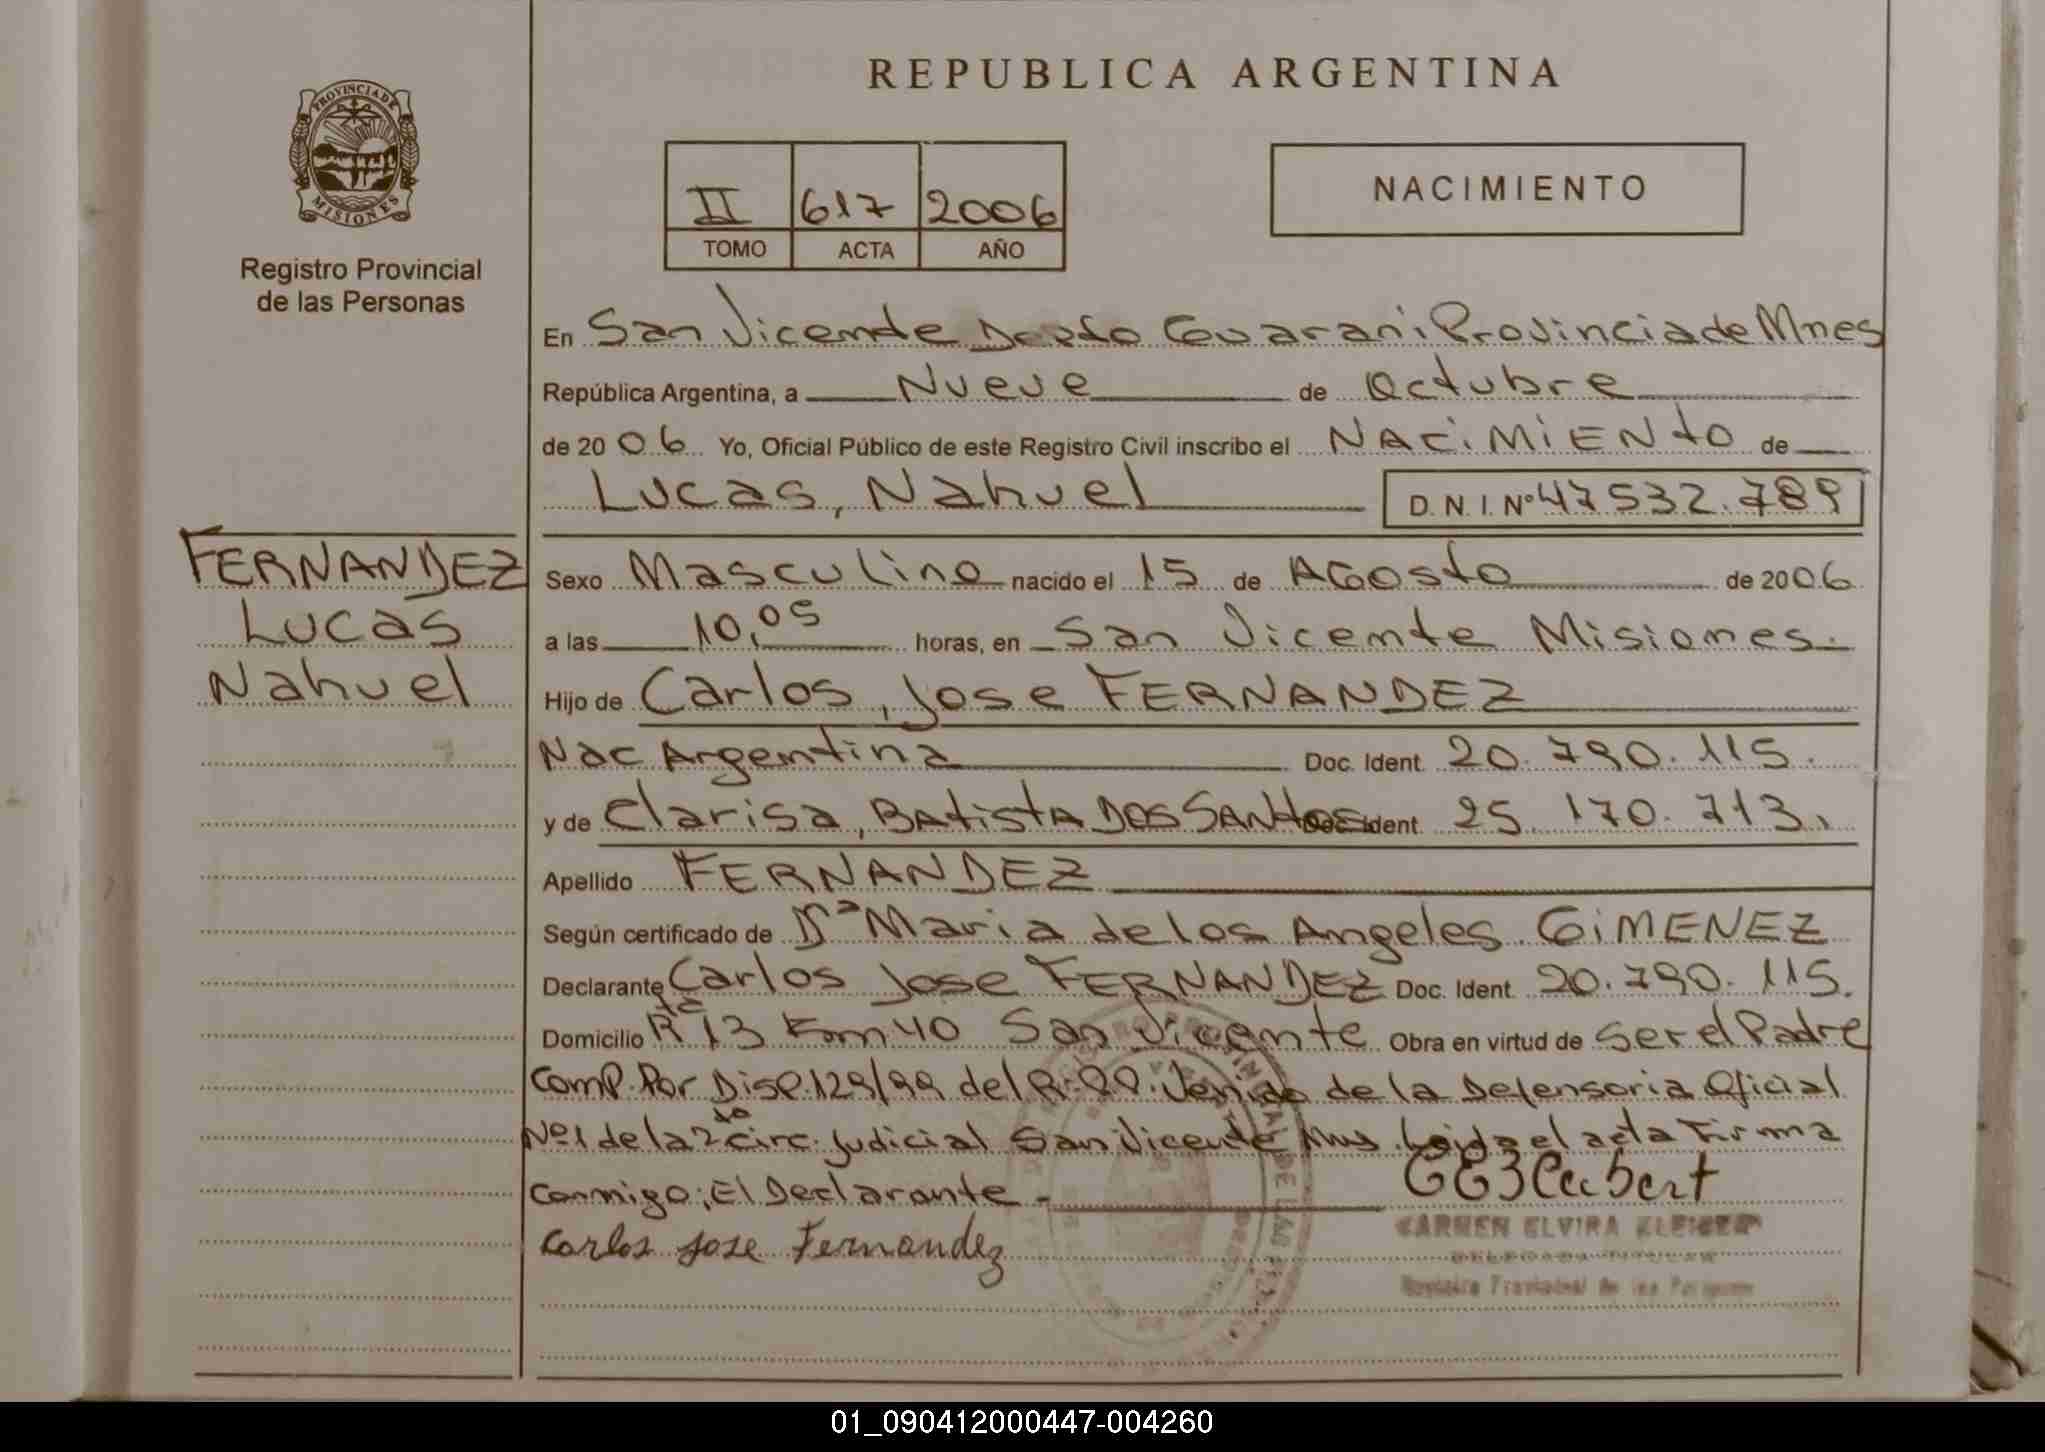 REPUBLICA ARGENTINA
PROVINCIA DE
MISIONES
Registro Provincial
de las Personas
II 617 2006
TOMO ACTA AÑO
NACIMIENTO
En San Vicente Dpto Guarani Provincia de Mnes
República Argentina, a Nueve de Octubre
de 2006 Yo, Oficial Público de este Registro Civil inscribo el NACIMIENTO de
Lucas, Nahuel D.N.I.Nº 47532.789
FERNANDEZ
Lucas
Nahuel
Sexo Masculino nacido el 15 de AGosto de 2006
a las 10,05 horas, en San Vicente Misiones.
Hijo de Carlos, Jose FERNANDEZ
Nac Argentina Doc. Ident. 20.790.115.
y de Clarisa, BAtistA DOS SANtos Doc. Ident. 25.170.713.
Apellido FERNANDEZ
Según certificado de Dª Maria de los Angeles GiMENEZ
Declarante Carlos Jose FERNANDEZ Doc. Ident. 20.790.115.
Domicilio Rta 13 Km 40 San Vicente Obra en virtud de ser el Padre
Comp. Por Disp. 129/99 del R.P.P. Venido de la Defensoria Oficial
Nº1 de la 2da Circ. Judicial San Vicente Mns. Leida el acta Firma
Conmigo; El Declarante.
Carlos Jose Fernandez
CARMEN ELVIRA
DELEGADA TITULAR
Registro Provincial de las Personas
01_090412000447-004260